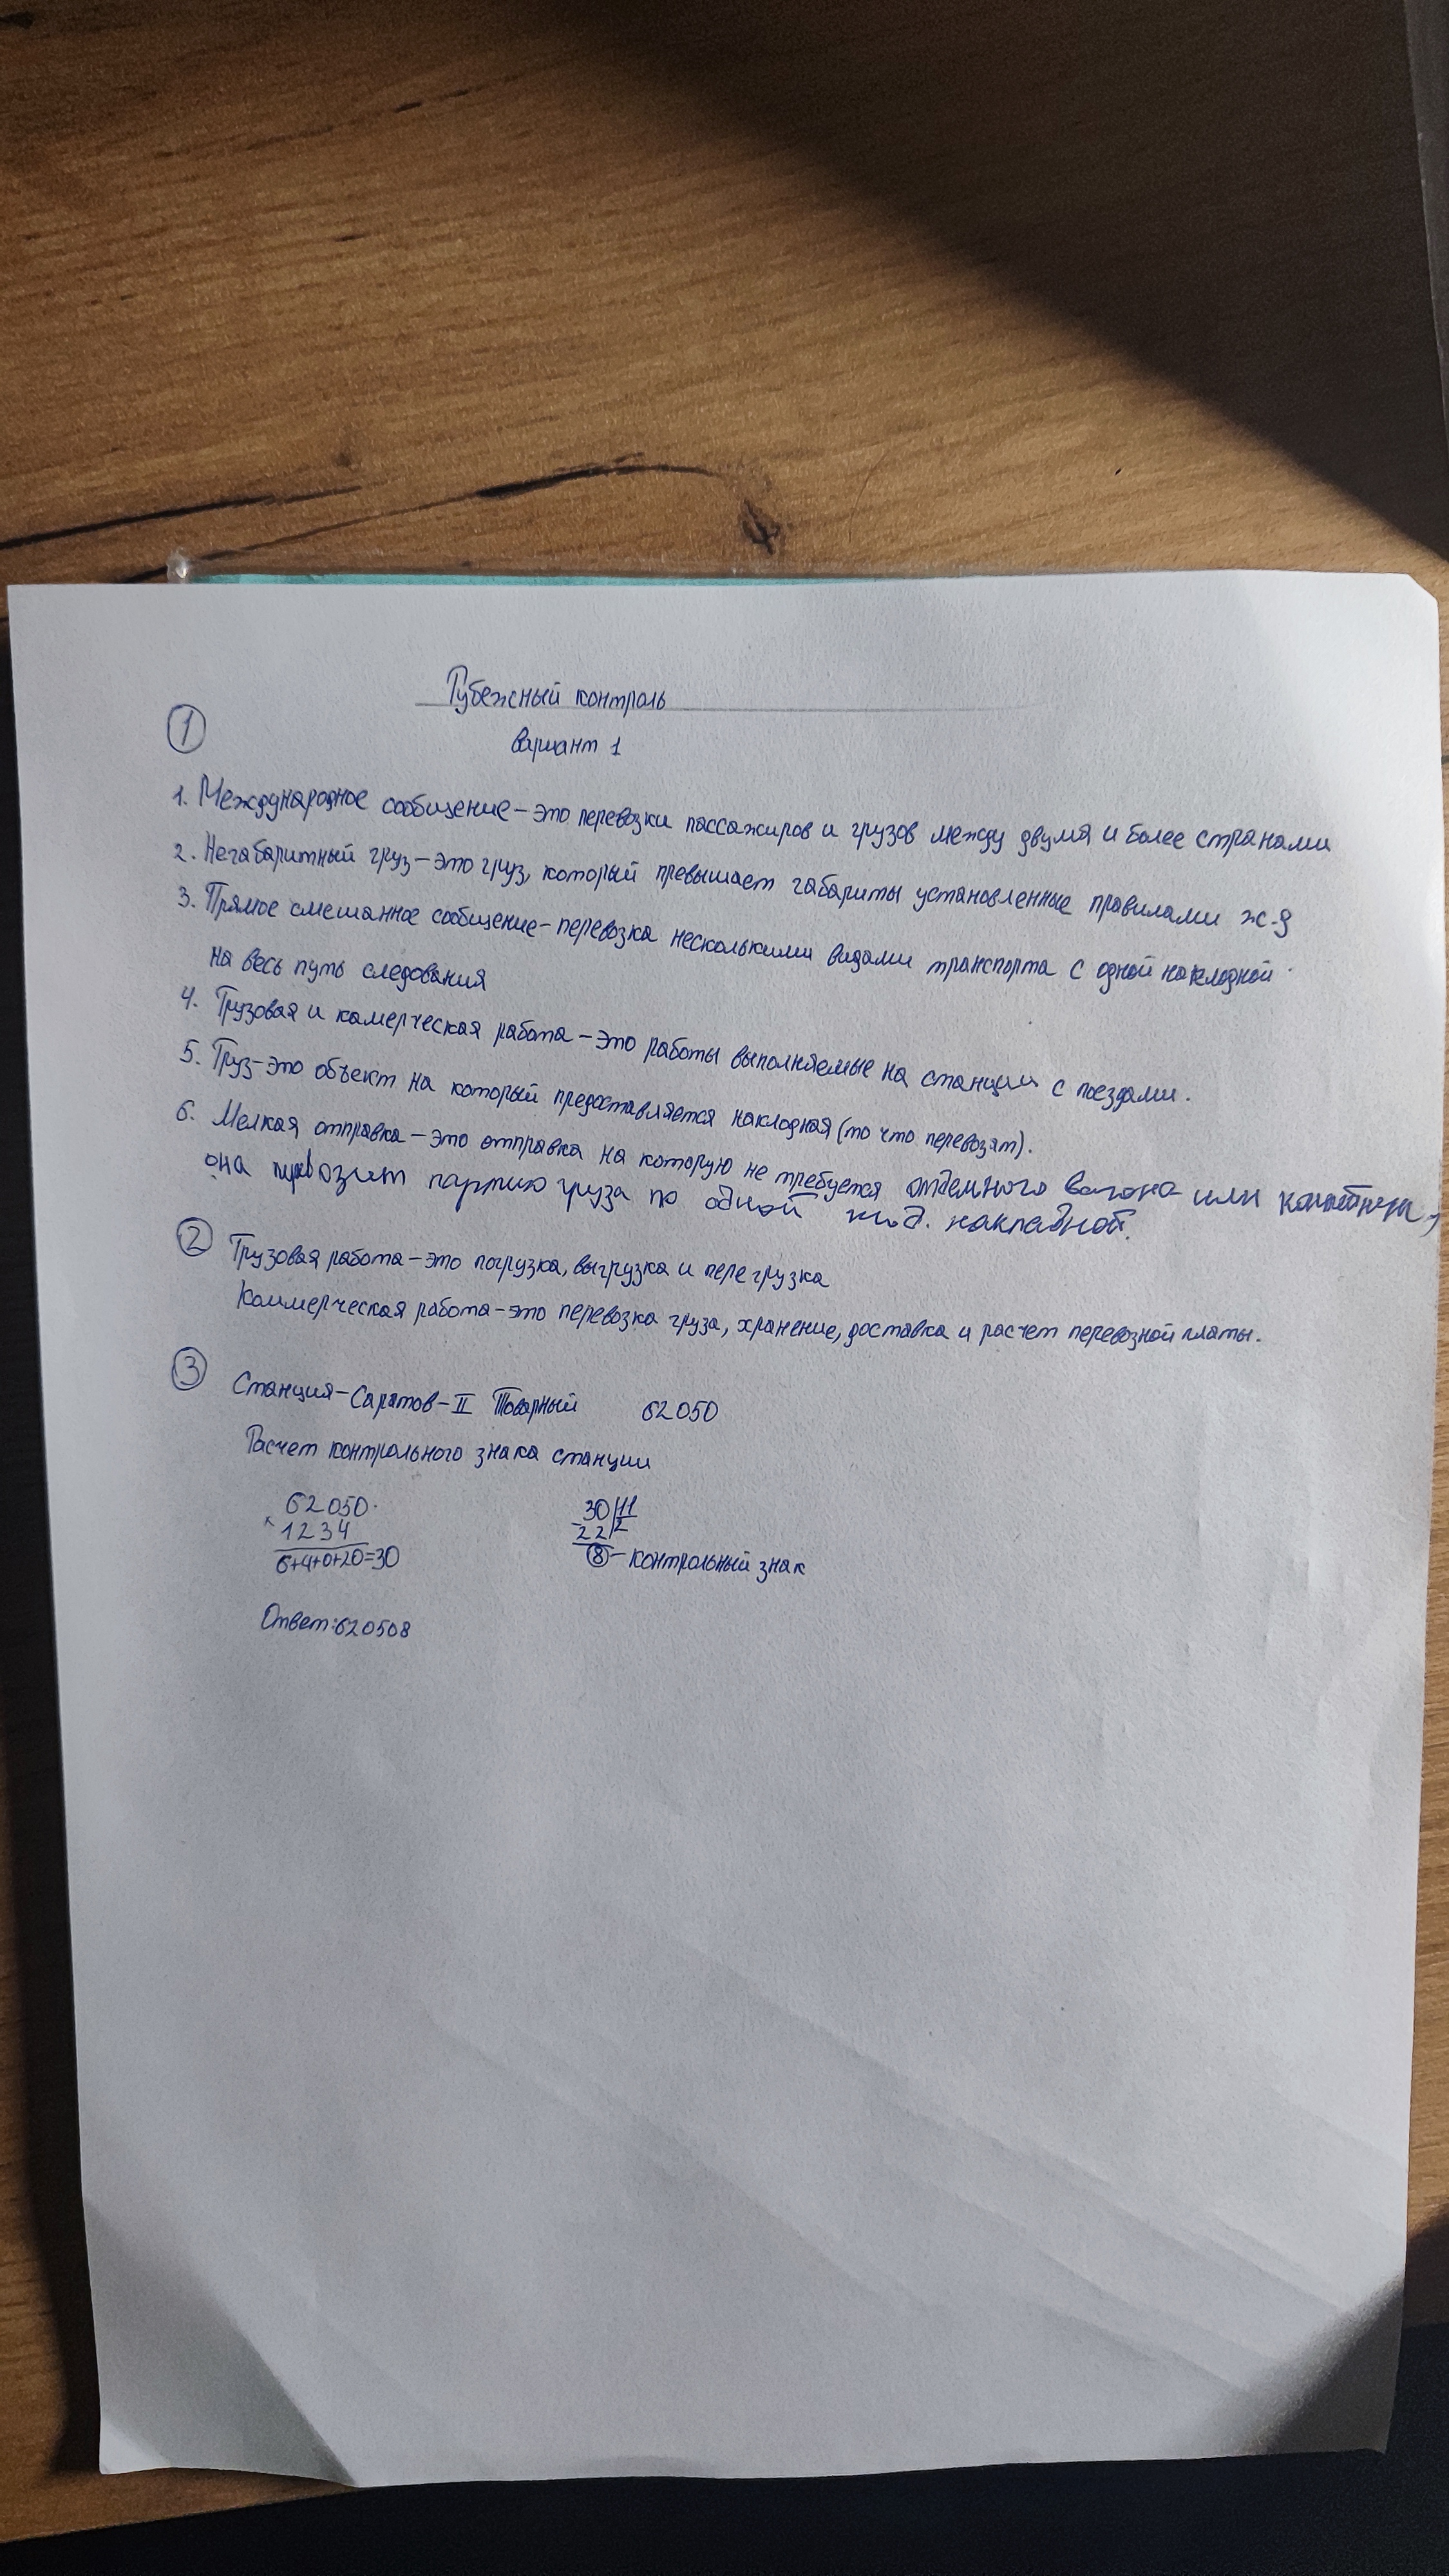 Рубежный контроль
Вариант 1
1
1. Международное сообщение – это перевозки пассажиров и грузов между двумя и более странами
2. Негабаритный груз – это груз, который превышает габариты установленные правилами ж-д
3. Прямое смешанное сообщение – перевозка несколькими видами транспорта с одной накладной
на весь путь следования
4. Грузовая и камерческая работа – это работы выполняемые на станции с поездами.
5. Груз – это объект на который предоставляется накладная (то что перевозят).
6. Мелкая отправка – это отправка на которую не требуется отдемного вагона или контейнера,
она перевозит партию груза по одной ж.д. накладной.
2
Грузовая работа – это погрузка, выгрузка и перегрузка
Коммерческая работа – это перевозка груза, хранение, доставка и расчет перевозной платы.
3
Станция – Саратов – II Товарный 62050
Расчет контрольного знака станции
62050
× 1234
6+4+0+20=30
30 | 11
- 22 | 2
8 – контрольный знак
Ответ: 620508